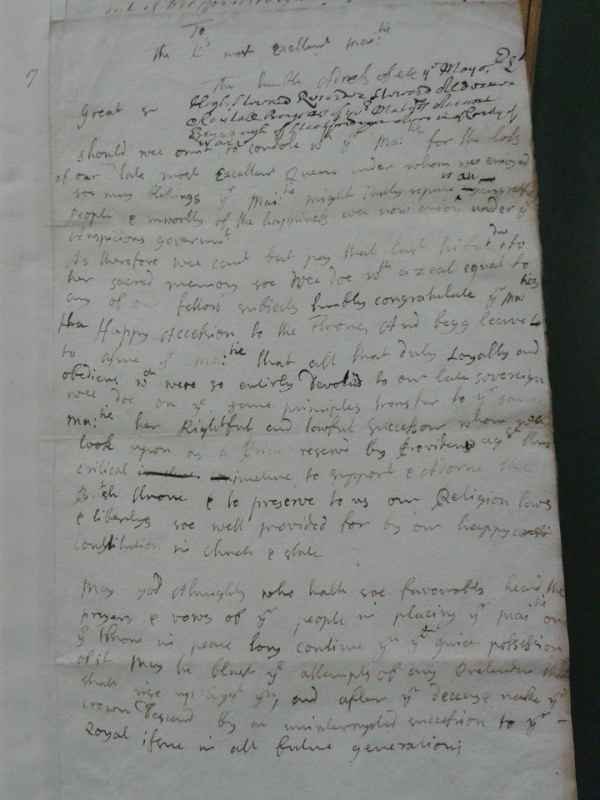 To
the Ks most Excellent Maitie
the humble Adress of ye Mayor
7
Great Sr
High Steward Recorder Steward Aldermen
Capital Burgesses of yr Matys
Borrough of
should wee omit to condole wth yr Maitie for the loss
of our late most Excellent Queen under whom wee enioyed
soe many blesings yr Maitie might iustly repute us an
people & unworthy of the happiness wee now under yr
auspicious governmt
As therefore wee cant but pay that last tribute due to
her sacred memory soe Wee Doe wth a zeal equal to
any of our fellow subiects humbly congratulate yr Maities
Happy Accession to the Throne, And begg leave
to assure yr Maitie that all that duty Loyalty and
obedience wch were so entirely Devoted to our late sovereign
wee doe on ye same principles transfer to yr
Maitie her Rightfull and lawful successour whom
look upon as a Prince reserv'd by Providence agst this
critical iuncture to support & adorne the
throne & to preserve to us our Religion laws
& libertys soe well provided for by our happy
constitution in church & state
May god Almighty who hath soe favorably heard the
prayers & vows of yr people in placing yr Maitie on
ye throne in peace long continue you in ye quiet possession
of it May he blast ye attempts of any Pretender that
shall rise up agst you, and after yr decease make yr
crown Descend by an uninterrupted succession to yr
Royal issue in all future generations